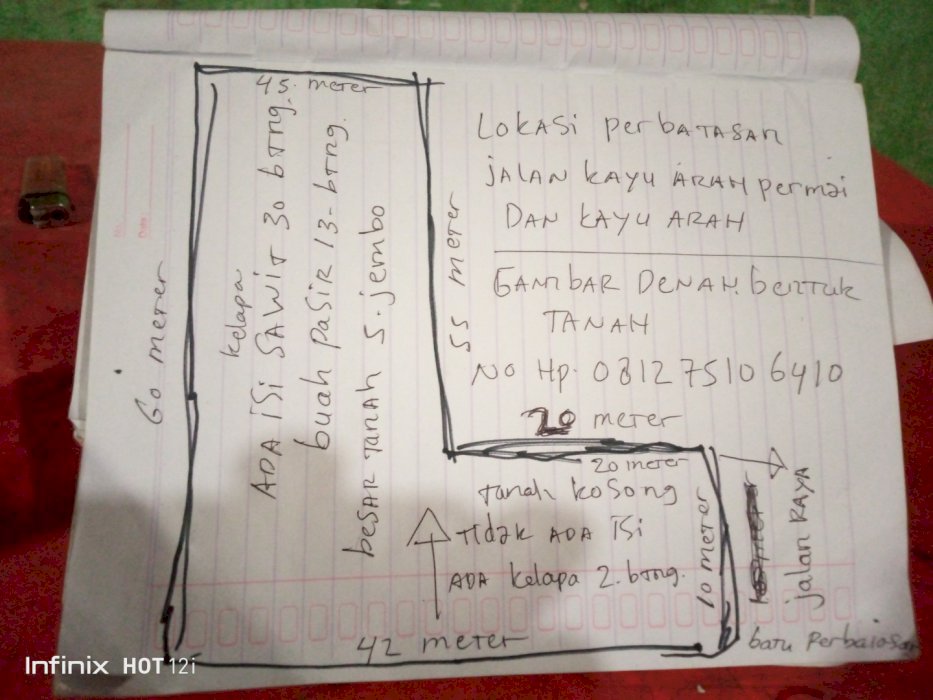 45. meter
LOKASi perbATASAn
jALAN kAyu ARAH permai
DAN kAyu ARAH
GAMbAR DENAH. bentuk
TANAH
No Hp. 081275106410
60 meter
kelapa
ADA iSi SAWiT 30 bTng.
buah pasir 13- bTng.
besar Tanah 5. jembo
55 meter
20 meter
20 meter
Tanah koSong
TIdak ADA ISi
ADA kelapa 2. bTng.
10 meter
jalan RAYA
42 meter
batu perbatasan
Infinix HOT 12i